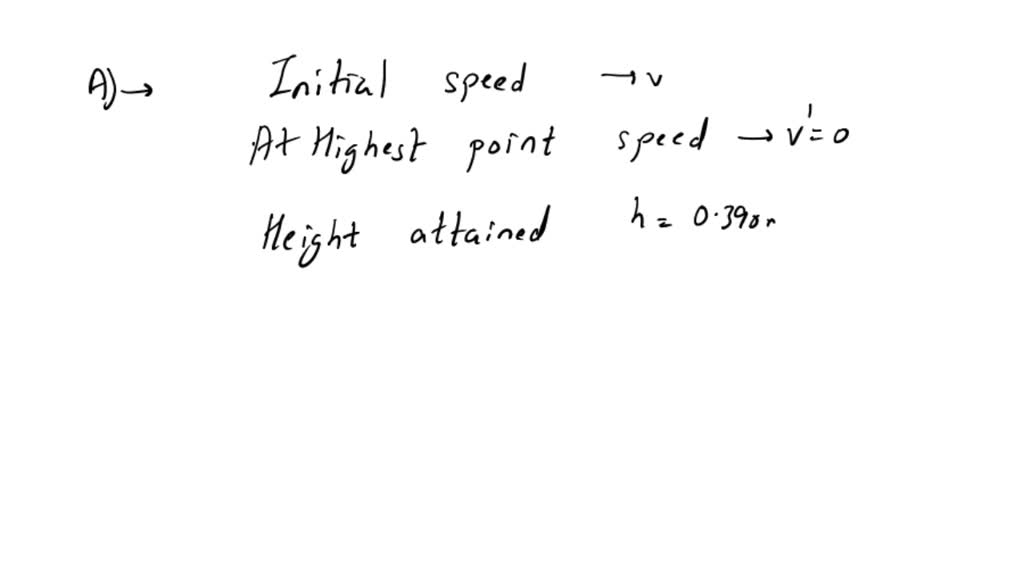 A)→ Initial speed → v
At Highest point speed → v'= 0
Height attained h =